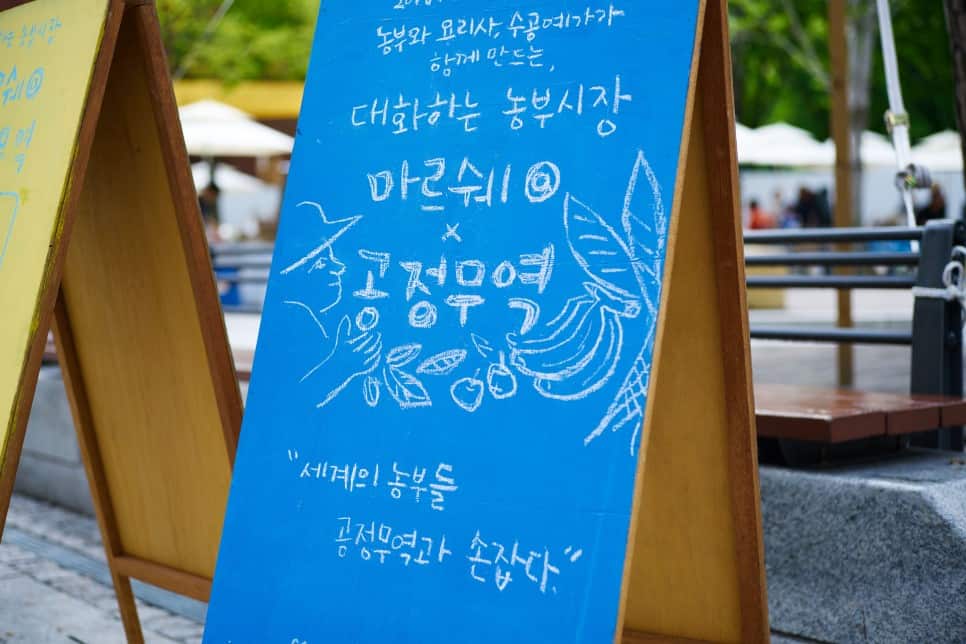 농부와 요리사, 수공예가가
함께 만드는,
대화하는 농부시장
마르쉐@
×
공정무역
"세계의 농부들
공정무역과 손잡다."
쉐@